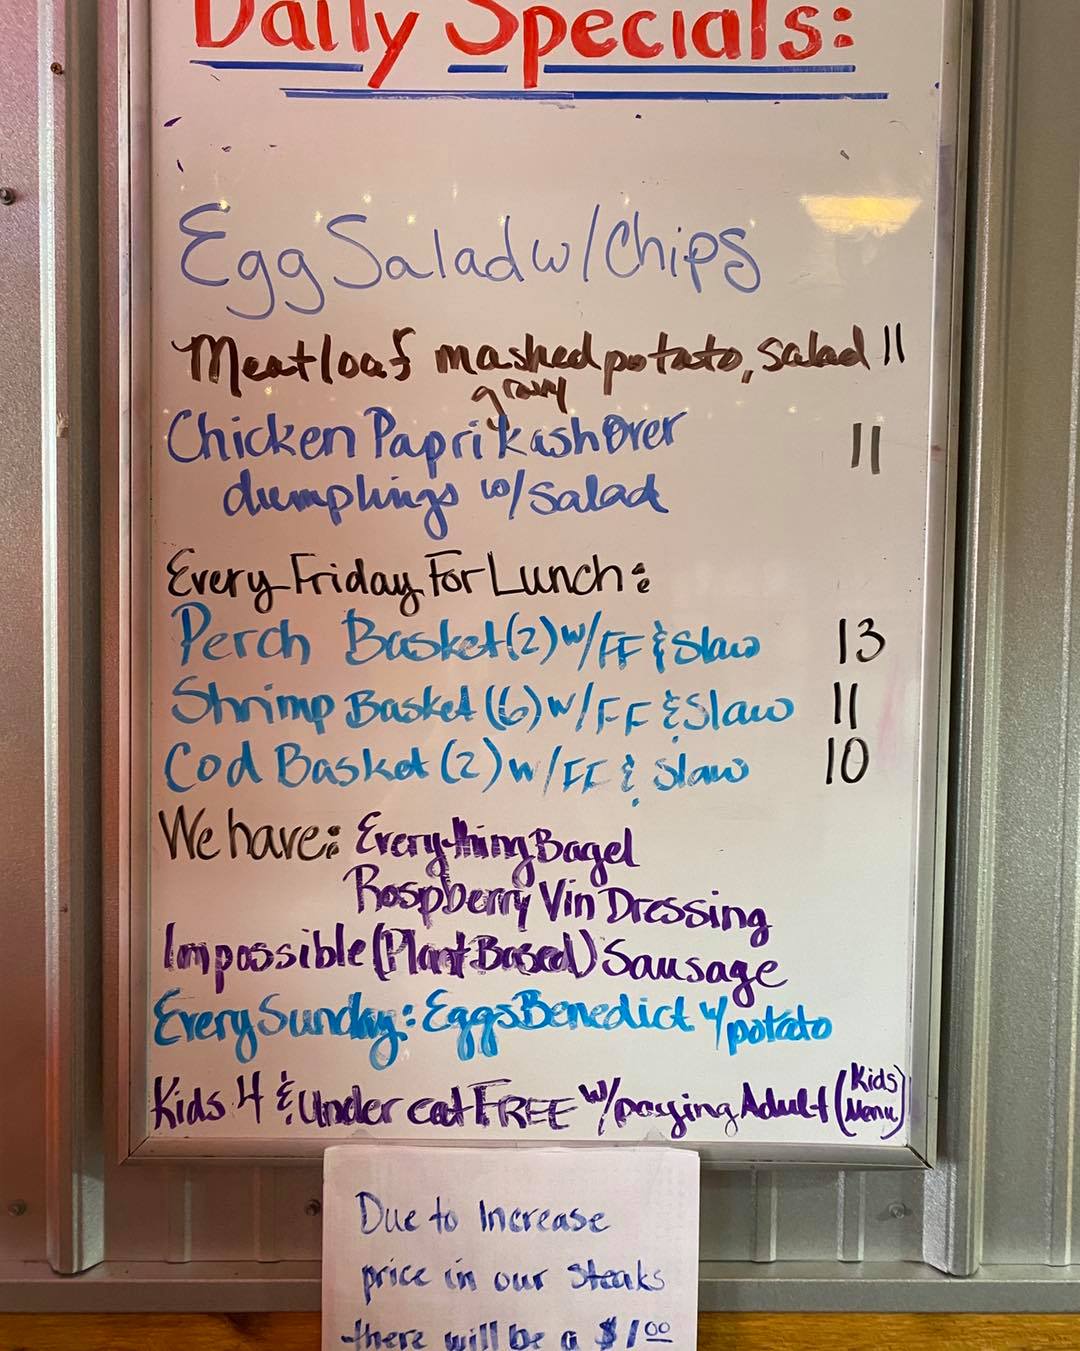 Daily Specials:
Egg Salad w/Chips
Meatloaf mashed potato, salad 11
gravy
Chicken Paprikash Over 11
dumplings w/ salad
Every Friday For Lunch:
Perch Basket (2) w/FF & Slaw 13
Shrimp Basket (6) w/FF & Slaw 11
Cod Basket (2) w/FF & Slaw 10
We have: Everything Bagel
Raspberry Vin Dressing
Impossible (Plant Based) Sausage
Every Sunday: Eggs Benedict w/potato
Kids 4 & Under eat FREE w/paying Adult (Kids Menu)
Due to Increase
price in our steaks
there will be a $1.00